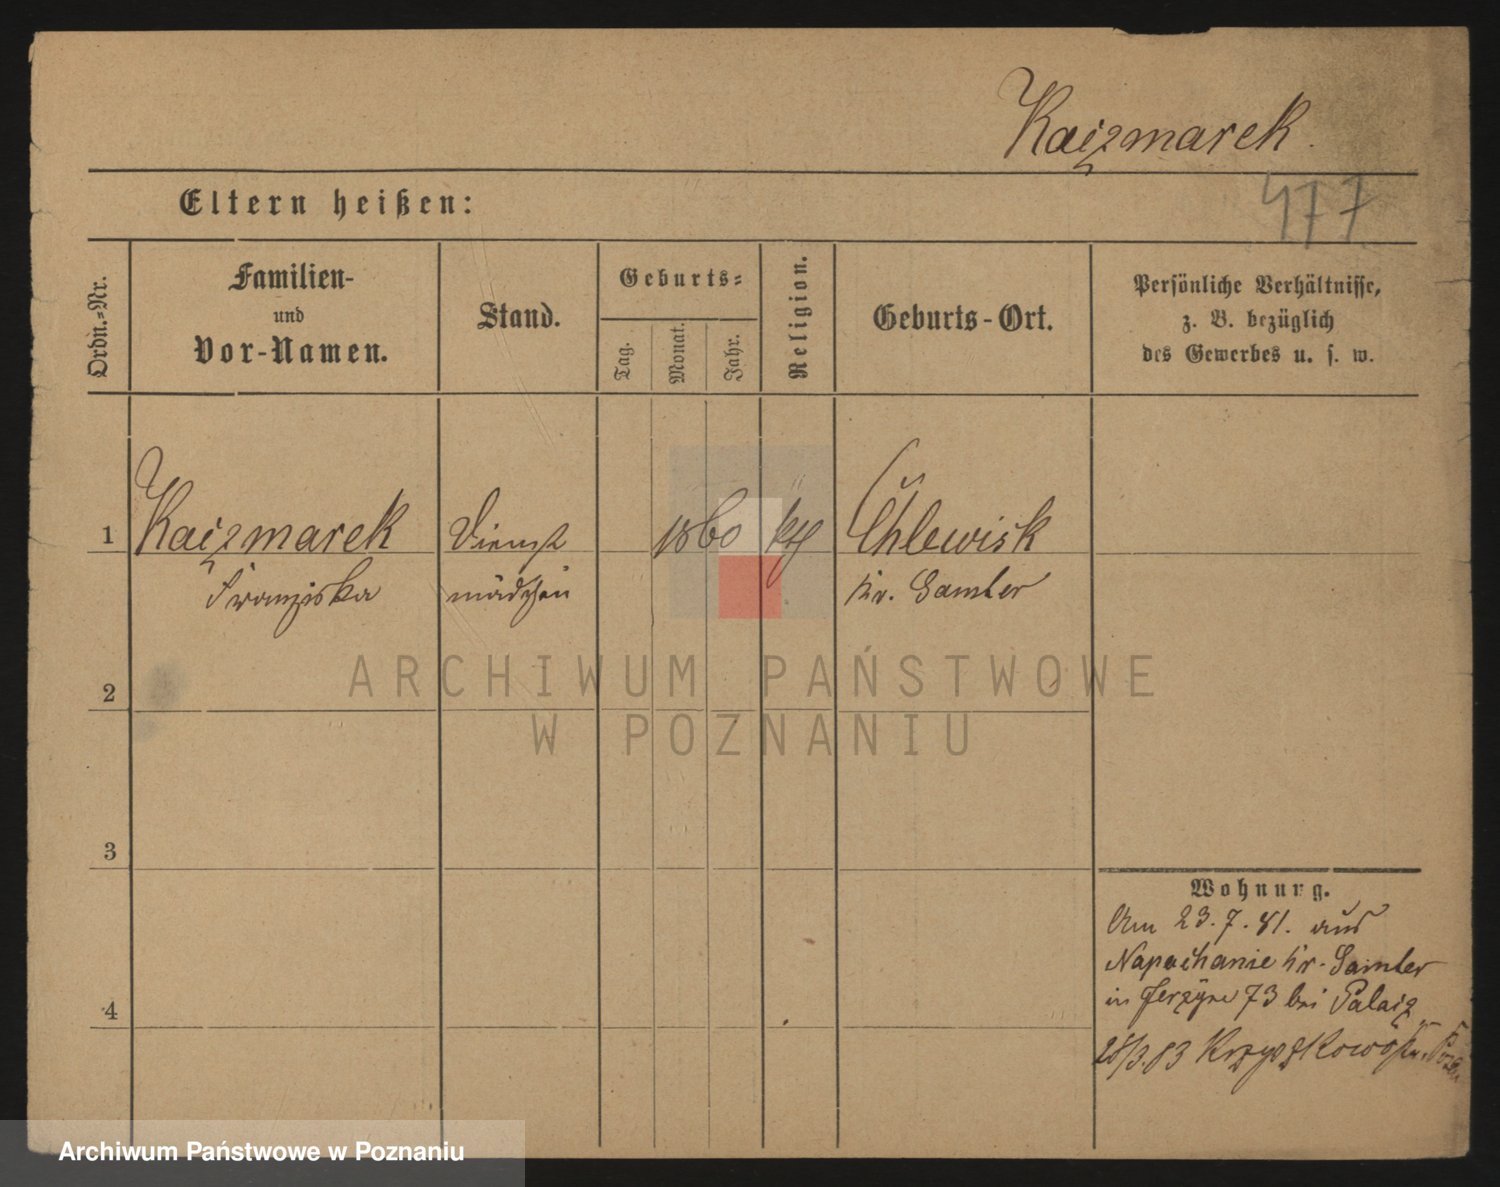 Kaczmarek.
Eltern heißen:
477
Ordn.-Nr.
Familien-
und
Vor-Namen.
Stand.
Geburts-
Tag.
Monat.
Jahr.
Religion.
Geburts-Ort.
Persönliche Verhältnisse,
z. B. bezüglich
des Gewerbes u. s. w.
1 Kaczmarek Dienst 1860 kth Chlewisk
Franziska mädchen Kr. Samter
ARCHIWUM PAŃSTWOWE
W POZNANIU
2
3
Wohnung.
Am 23.7.81. aus
Napachanie Kr. Samter
in Jerzyce 73 bei Palacz
4
28/3.83 Krzyszkowo Kr. Posen
Archiwum Państwowe w Poznaniu